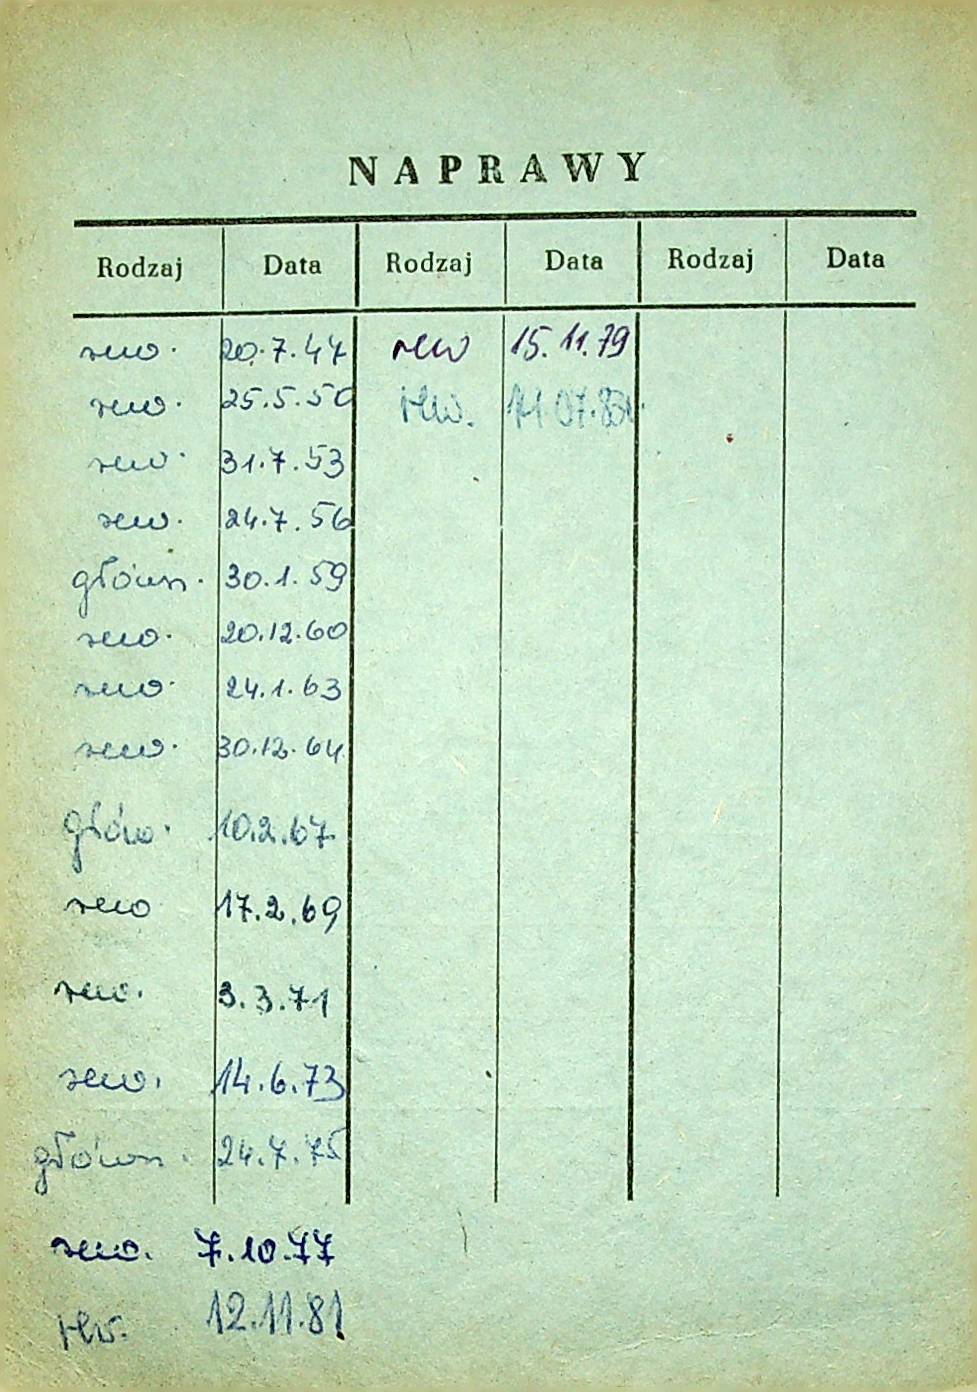 NAPRAWY
Rodzaj Data Rodzaj Data Rodzaj Data
rew. 20.7.47 rew 15.11.79
rew. 25.5.50 rew.
rew. 31.7.53
rew. 24.7.56
główn. 30.1.59
rew. 20.12.60
rew. 24.1.63
rew. 30.12.64
głów. 10.2.67
rew 17.2.69
rew. 3.3.71
rew. 14.6.73
główn. 24.7.75
rew. 7.10.77
rew. 12.11.81